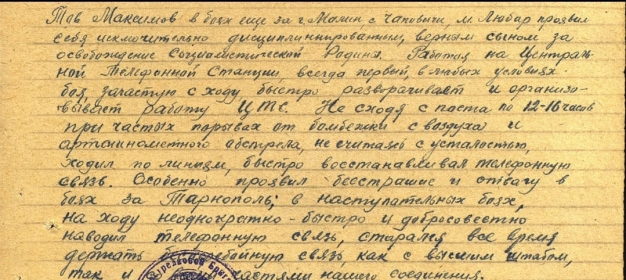 Тов Максимов в боях еще за г. Малин с. Чаповичи, м. Любар проявил
себя исключительно дисциплинированным, верным сыном за
освобождение Социалистической Родины. Работая на Централь-
ной Телефонной Станции, всегда первый, в любых условиях
боя, зачастую с ходу быстро разворачивает и организо-
вывает работу ЦТС. Не сходя с поста по 12-16 часов
при частых порывах от бомбежки с воздуха и
артминометного обстрела, не считаясь с усталостью,
ходил по линиям, быстро восстанавливал телефонную
связь. Особенно проявил бесстрашие и отвагу в
боях за Тарнополь; в наступательных боях,
на ходу неоднократно - быстро и добросовестно
наводил телефонную связь, старался все время
держать бесперебойную связь как с высшим штабом,
так и частями нашего соединения.